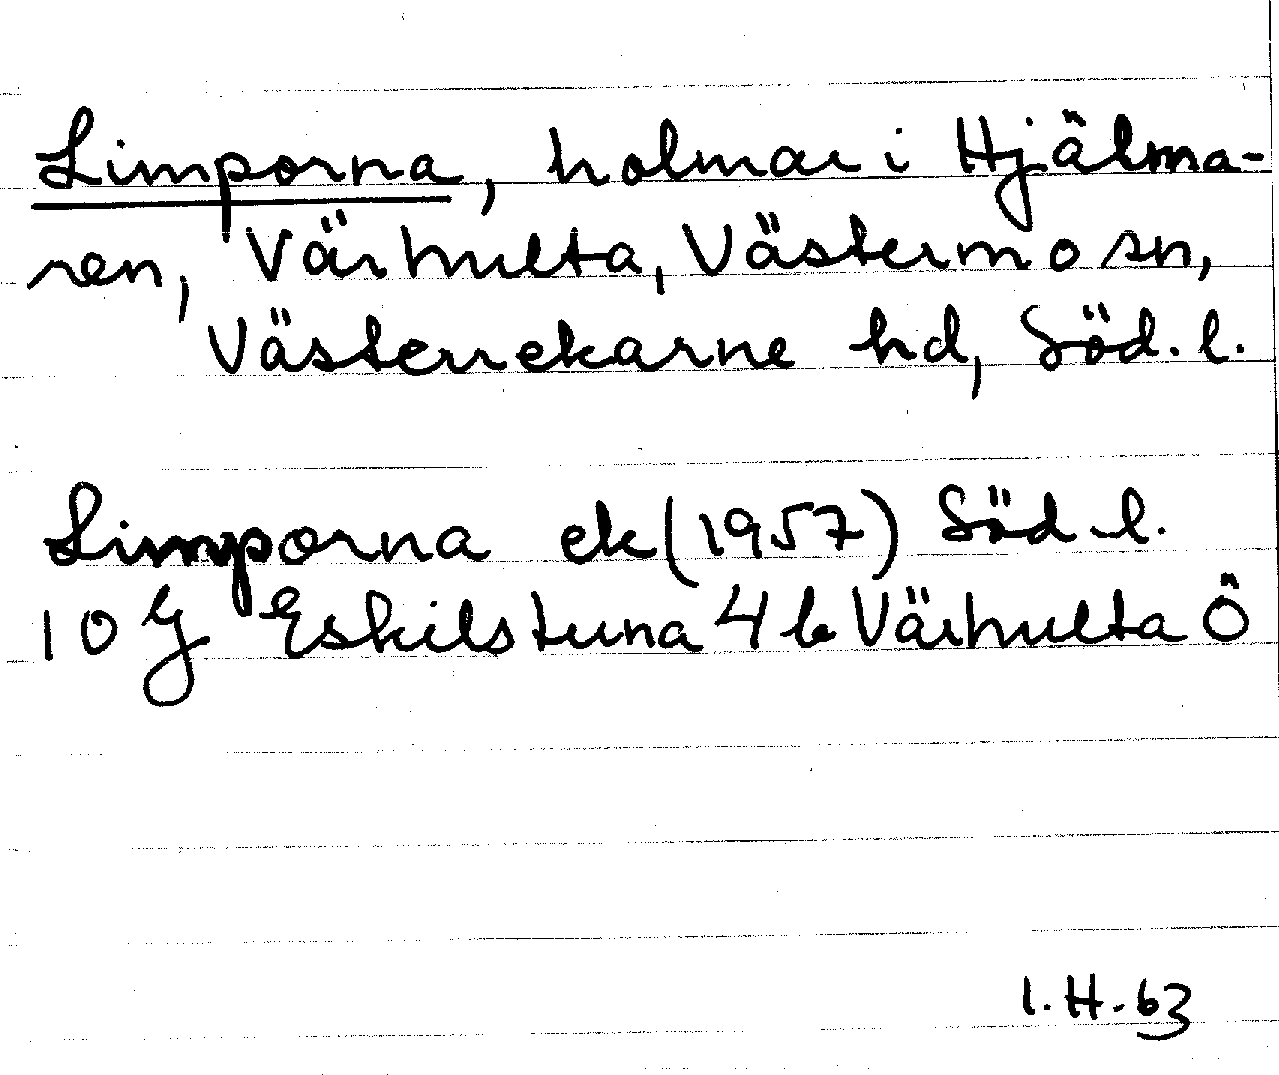 Limporna, holmar i Hjälma-
ren, Värhulta, Västermo sn,
Västerrekarne hd, Söd. l.
Limporna ek (1957) Söd. l.
10 G Eskilstuna 4 b Värhulta Ö
I.H.63